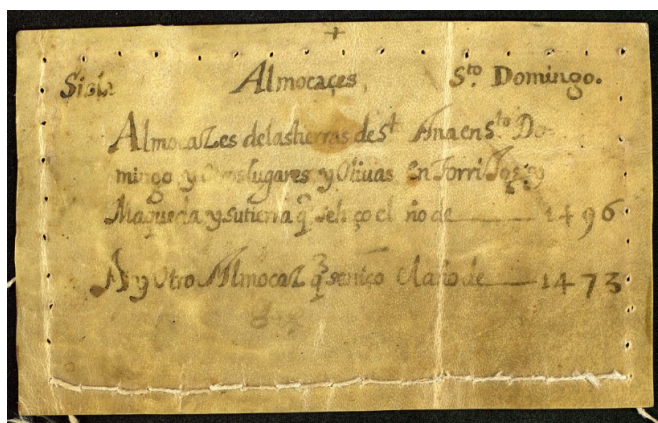 Sisla Almocaçes, Sto. Domingo.
Almocazes delastierras de Sta Ana en Sto Do-
mingo y Otros lugares y Oliuas en Torrijos y
Maqueda y sutierra q̃ se hiço el año de 1496
Ay Otro Almocaz q̃ se hiço el año de 1473